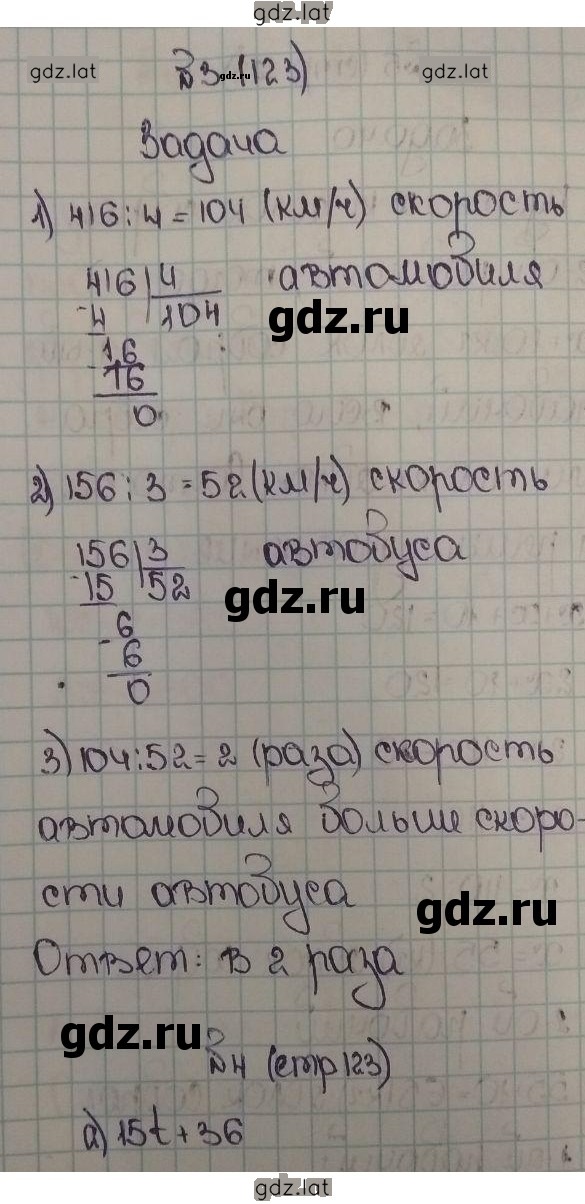 gdz.lat
gdz.lat gdz.lat
№3 (123)
gdz.lat
Задача
1) 416 : 4 = 104 (км/ч) скорость
автомобиля
416 | 4
- 4 | 104
gdz.ru
- 16
16
0
2) 156 : 3 = 52 (км/ч) скорость
автобуса
156 | 3
- 15 | 52
gdz.ru
- 6
6
0
3) 104 : 52 = 2 (раза) скорость
автомобиля больше скоро-
сти автобуса
gdz.ru
Ответ: в 2 раза
gdz.ru
№4 (стр 123)
а) 15t + 36
gdz.lat